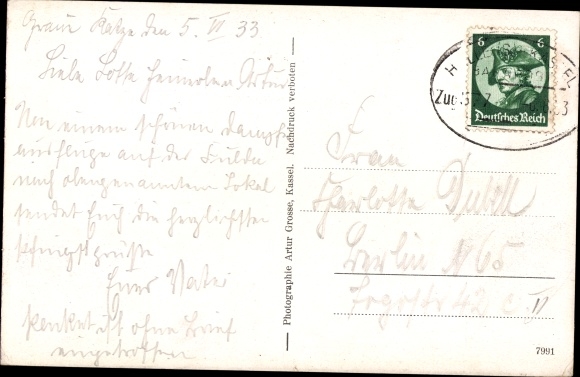 Graue Katze den 5. VI 33
Liebe Lotte Heinerle u Artur
Von einem schönen Dampfer
ausfluge auf der Fulda
nach obengenanntem Lokal
sendet Euch die herzlichsten
Pfingstgrüße
Euer Vater
Paket ist ohne Brief
eingetroffen
Photographie Artur Grosse, Kassel. Nachdruck verboten
6 6
Deutsches Reich
Zug
Frau
Charlotte
Berlin N 65
Togostr 42 c II
7991